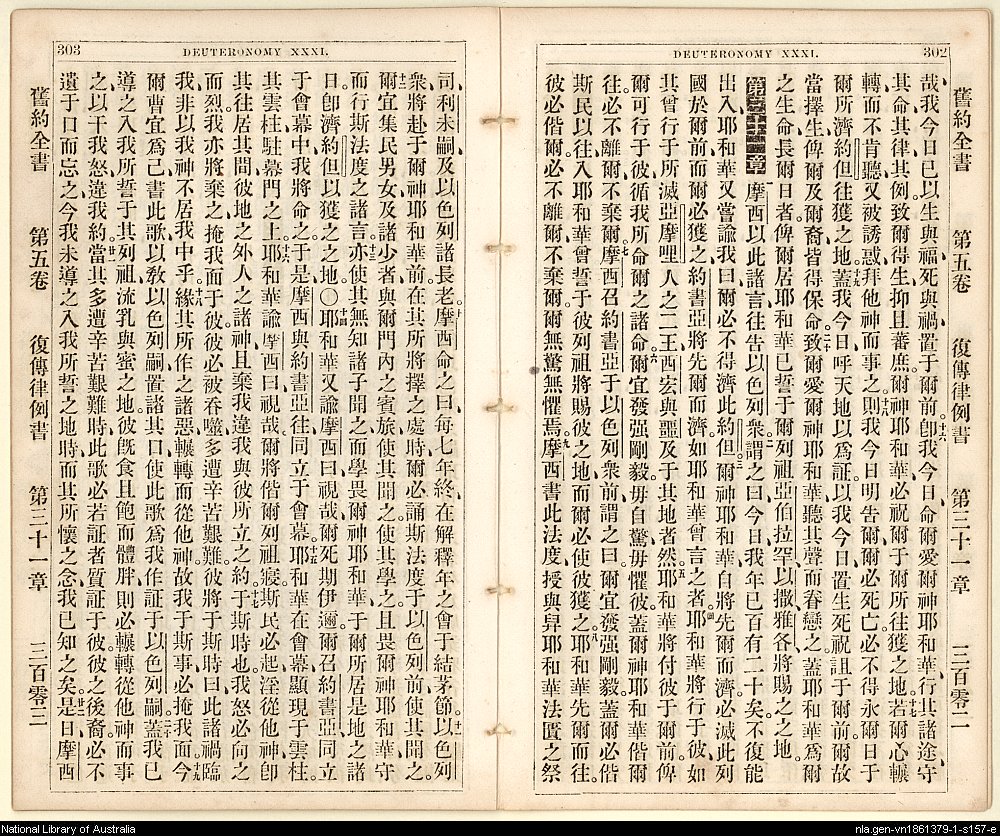 DEUTERONOMY XXXI.
302
舊約全書 第五卷 復傳律例書 第三十一章 三百零二
哉、我今日已以生與福死與禍置于爾前。十六卽我今日命爾愛爾神耶和華、行其諸途守
其命其律其例致爾得生抑且蕃庶、爾神耶和華必祝爾于爾所往獲之地。十七若爾心輾
轉而不肯聽又被誘惑拜他神而事之、十八則我今日明告爾爾必死亡必不得永爾日于
爾所濟約但往獲之地。十九蓋我今日呼天地以爲証以我今日置生死祝詛于爾前爾故
當擇生俾爾及爾裔皆得保命。二十致爾愛爾神耶和華聽其聲而眷戀之蓋耶和華爲爾
之生命長爾日者俾爾居耶和華已誓于爾列祖亞伯拉罕以撒雅各將賜之之地。
第三十一章 摩西以此諸言往告以色列衆、二謂之曰今日我年已百有二十矣、不復能
出入、耶和華又嘗諭我曰爾必不得濟此約但。三爾神耶和華自將先爾而濟必滅此列
國於爾前而爾必獲之約書亞將先爾而濟如耶和華曾言之者。四耶和華將行于彼如
其曾行于所滅亞摩哩人之二王西宏與噩及于其地者然。五耶和華將付彼于爾前俾
爾可行于彼循我所命爾之諸命。六爾宜發强剛毅毋自驚毋懼彼蓋爾神耶和華偕爾
往必不離爾不棄爾。七摩西召約書亞于以色列衆前謂之曰爾宜發强剛毅蓋爾必偕
斯民以往入耶和華曾誓于彼列祖將賜彼之地而爾必使彼獲之。八耶和華先爾而往
彼必偕爾必不離爾不棄爾爾無驚無懼焉。九摩西書此法度授與舁耶和華法匱之祭
DEUTERONOMY XXXI.
303
司利未嗣及以色列諸長老。十摩西命之曰每七年終在解釋年之會于結茅節、十一以色列
衆將赴于爾神耶和華前在其所將擇之處時爾必誦斯法度于以色列前使其聞之。
十二爾宜集民男女及諸少者與爾門內之賓旅使其聞之使其學之且畏爾神耶和華守
而行斯法度之諸言、十三亦使其無知諸子聞之而學畏爾神耶和華于爾所居是地之諸
日卽濟約但以獲之之地。〇十四耶和華又諭摩西曰視哉爾死期伊邇爾召約書亞同立
于會幕中我將命之于是摩西與約書亞往同立于會幕。十五耶和華在會幕顯現于雲柱、
其雲柱駐幕門之上。十六耶和華諭摩西曰視哉爾將偕爾列祖寢斯民必起淫從他神卽
其往居其間彼地之外人之諸神且棄我違我與彼所立之約。十七于斯時也我怒必向之
而烈我亦將棄之掩我面于彼彼必被吞噬多遭辛苦艱難彼將于斯時曰此諸禍臨
我非以我神不居我中乎。十八緣其所作之諸惡輾轉而從他神故我于斯事必掩我面。十九今
爾曹宜爲己書此歌以敎以色列嗣置諸其口使此歌爲我作証于以色列嗣。二十蓋我已
導之入我所誓于其列祖流乳與蜜之地彼旣食且飽而體胖則必輾轉從他神而事
之以干我怒違我約。廿一當其多遭辛苦艱難時此歌必若証者質証于彼彼之後裔必不
遺于口而忘之今我未導之入我所誓之地時而其所懷之念我已知之矣。廿二是日摩西
舊約全書 第五卷 復傳律例書 第三十一章 三百零三
National Library of Australia
nla.gen-vn1861379-1-s157-e